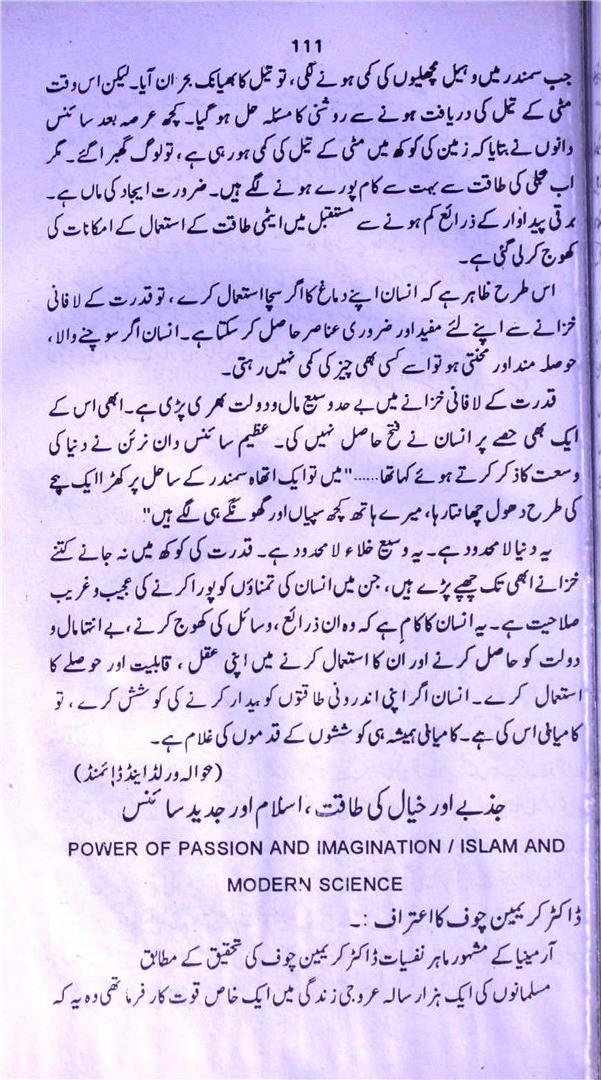 111
جب سمندر میں وہیل مچھلیوں کی کمی ہونے لگی، تو تیل کا بھیانک بحران آیا۔ لیکن اس وقت
مٹی کے تیل کی دریافت ہونے سے روشنی کا مسئلہ حل ہو گیا۔ کچھ عرصہ بعد سائنس
دانوں نے بتایا کہ زمین کی کوکھ میں مٹی کے تیل کی کمی ہو رہی ہے، تو لوگ گھبرا گئے۔ مگر
اب بجلی کی طاقت سے بہت سے کام پورے ہونے لگے ہیں۔ ضرورت ایجاد کی ماں ہے۔
برقی پیداوار کے ذرائع کم ہونے سے مستقبل میں ایٹمی طاقت کے استعمال کے امکانات کی
کھوج کر لی گئی ہے۔
اس طرح ظاہر ہے کہ انسان اپنے دماغ کا اگر سچا استعمال کرے، تو قدرت کے لافانی
خزانے سے اپنے لئے مفید اور ضروری عناصر حاصل کر سکتا ہے۔ انسان اگر سوچنے والا،
حوصلہ مند اور محنتی ہو تو اسے کسی بھی چیز کی کمی نہیں رہتی۔
قدرت کے لافانی خزانے میں بے حد وسیع مال و دولت بھری پڑی ہے۔ ابھی اس کے
ایک بھی حصے پر انسان نے فتح حاصل نہیں کی۔ عظیم سائنس دان نرئن نے دنیا کی
وسعت کا ذکر کرتے ہوئے کہا تھا......"میں تو ایک اتھاہ سمندر کے ساحل پر کھڑا ایک بچے
کی طرح دھول چھانتا رہا، میرے ہاتھ کچھ سپیاں اور گھونگے ہی لگے ہیں"
یہ دنیا لامحدود ہے۔ یہ وسیع خلاء لامحدود ہے۔ قدرت کی کوکھ میں نہ جانے کتنے
خزانے ابھی تک چھپے پڑے ہیں، جن میں انسان کی تمناؤں کو پورا کرنے کی عجیب و غریب
صلاحیت ہے۔ یہ انسان کا کام ہے کہ وہ ان ذرائع، وسائل کی کھوج کرنے، بے انتہا مال و
دولت کو حاصل کرنے اور ان کا استعمال کرنے میں اپنی عقل، قابلیت اور حوصلے کا
استعمال کرے۔ انسان اگر اپنی اندرونی طاقتوں کو بیدار کرنے کی کوشش کرے، تو
کامیابی اس کی ہے۔ کامیابی ہمیشہ ہی کوششوں کے قدموں کی غلام ہے۔
(حوالہ ورلڈ اینڈ ڈائمنڈ)
جذبے اور خیال کی طاقت، اسلام اور جدید سائنس
POWER OF PASSION AND IMAGINATION / ISLAM AND
MODERN SCIENCE
ڈاکٹر کریمین چوف کا اعتراف :۔
آرمینیا کے مشہور ماہر نفسیات ڈاکٹر کریمین چوف کی تحقیق کے مطابق
مسلمانوں کی ایک ہزار سالہ عروجی زندگی میں ایک خاص قوت کار فرما تھی وہ یہ کہ